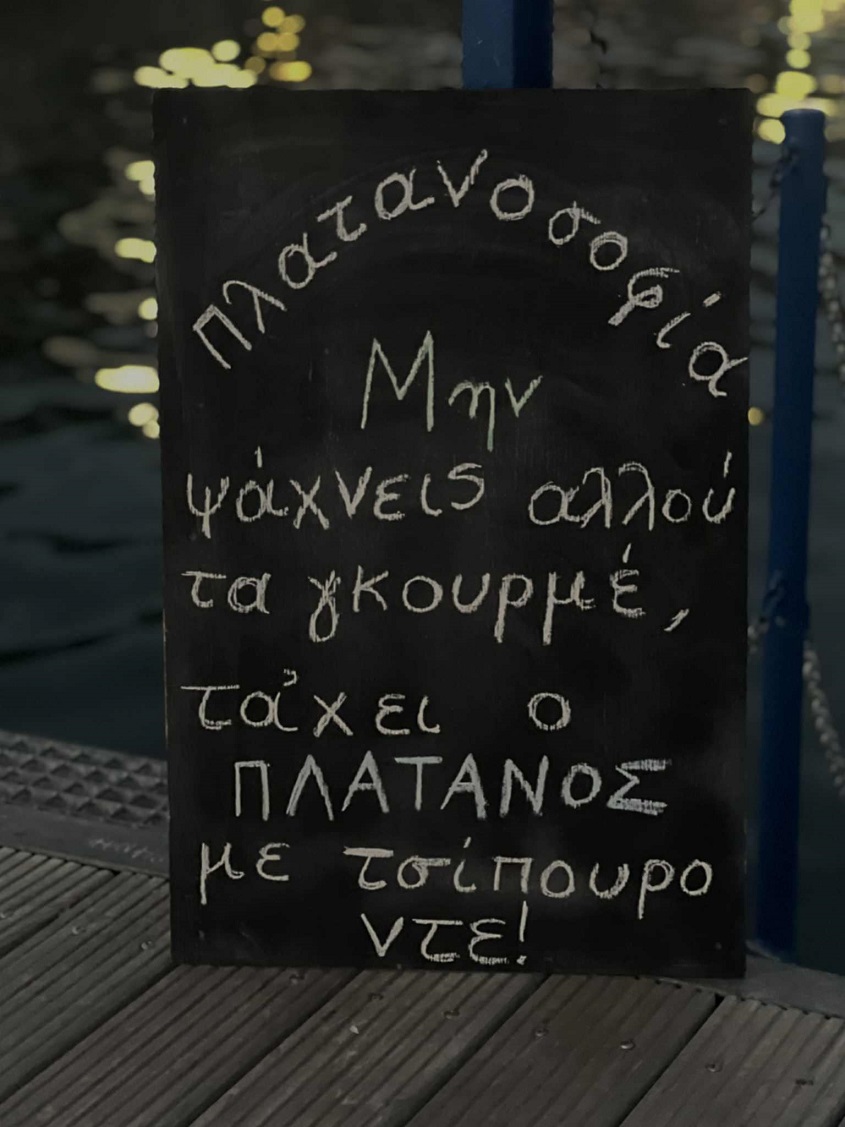 Πλατανοσοφία
Μην
ψάχνεις αλλού
τα γκουρμέ,
τα'χει ο
ΠΛΑΤΑΝΟΣ
με τσίπουρο
ντε!